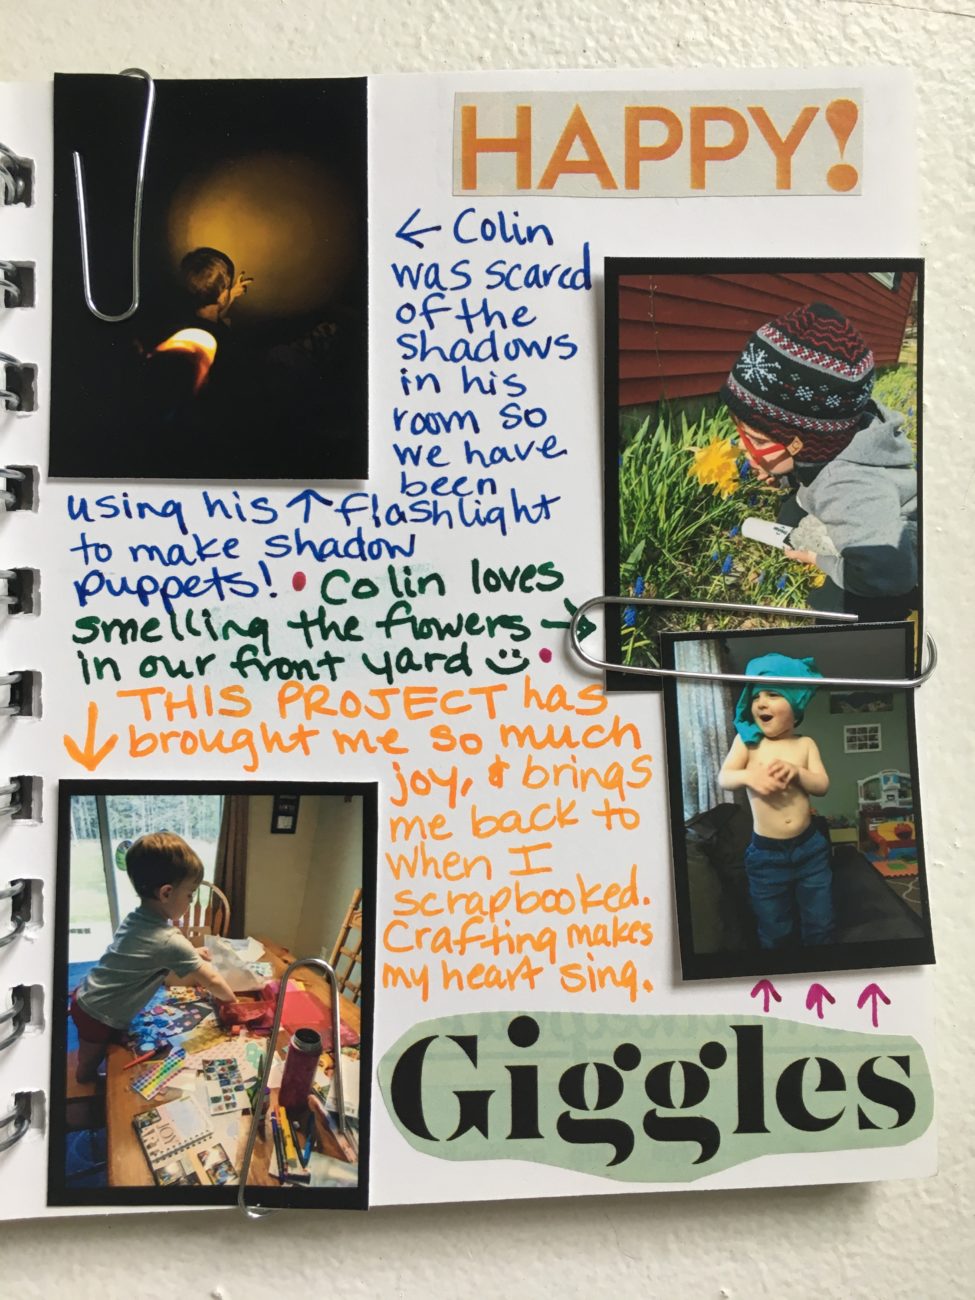 HAPPY!
← Colin
was scared
of the
shadows
in his
room so
we have
been
using his ↑ flashlight
to make shadow
puppets! • Colin loves
smelling the flowers →
in our front yard •
THIS PROJECT has
brought me so much
joy, & brings
me back to
when I
scrapbooked.
Crafting makes
my heart sing.
Giggles
JOY